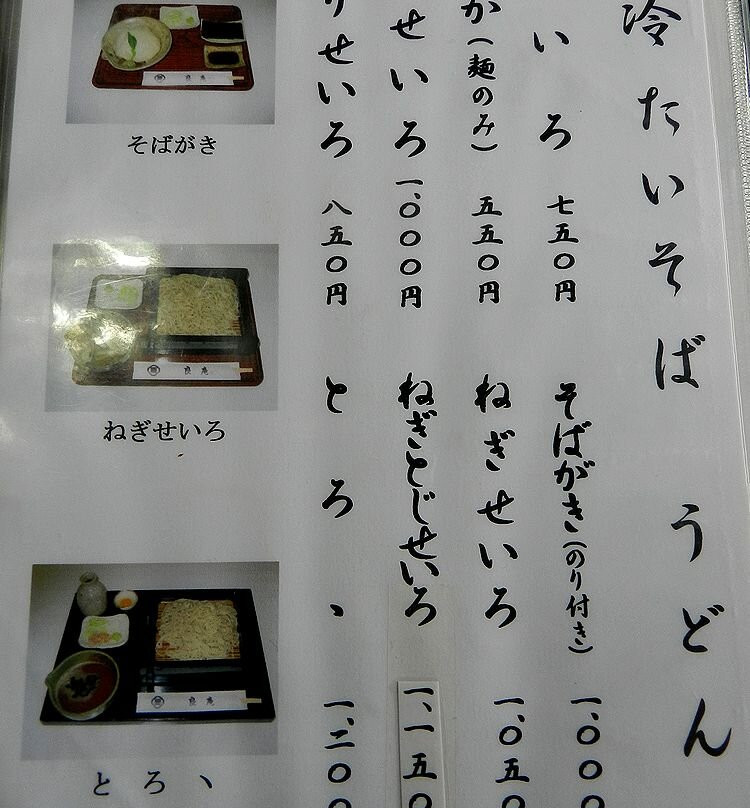 冷たいそば うどん
いろ 七五〇円
そばがき(のり付き) 一、〇〇〇
か(麺のみ) 五五〇円
ねぎせいろ 一、〇五〇
せいろ 一、〇〇〇円
ねぎとじせいろ 一、一五〇
りせいろ 八五〇円
とろゝ 一、二〇〇
そばがき
ねぎせいろ
とろゝ